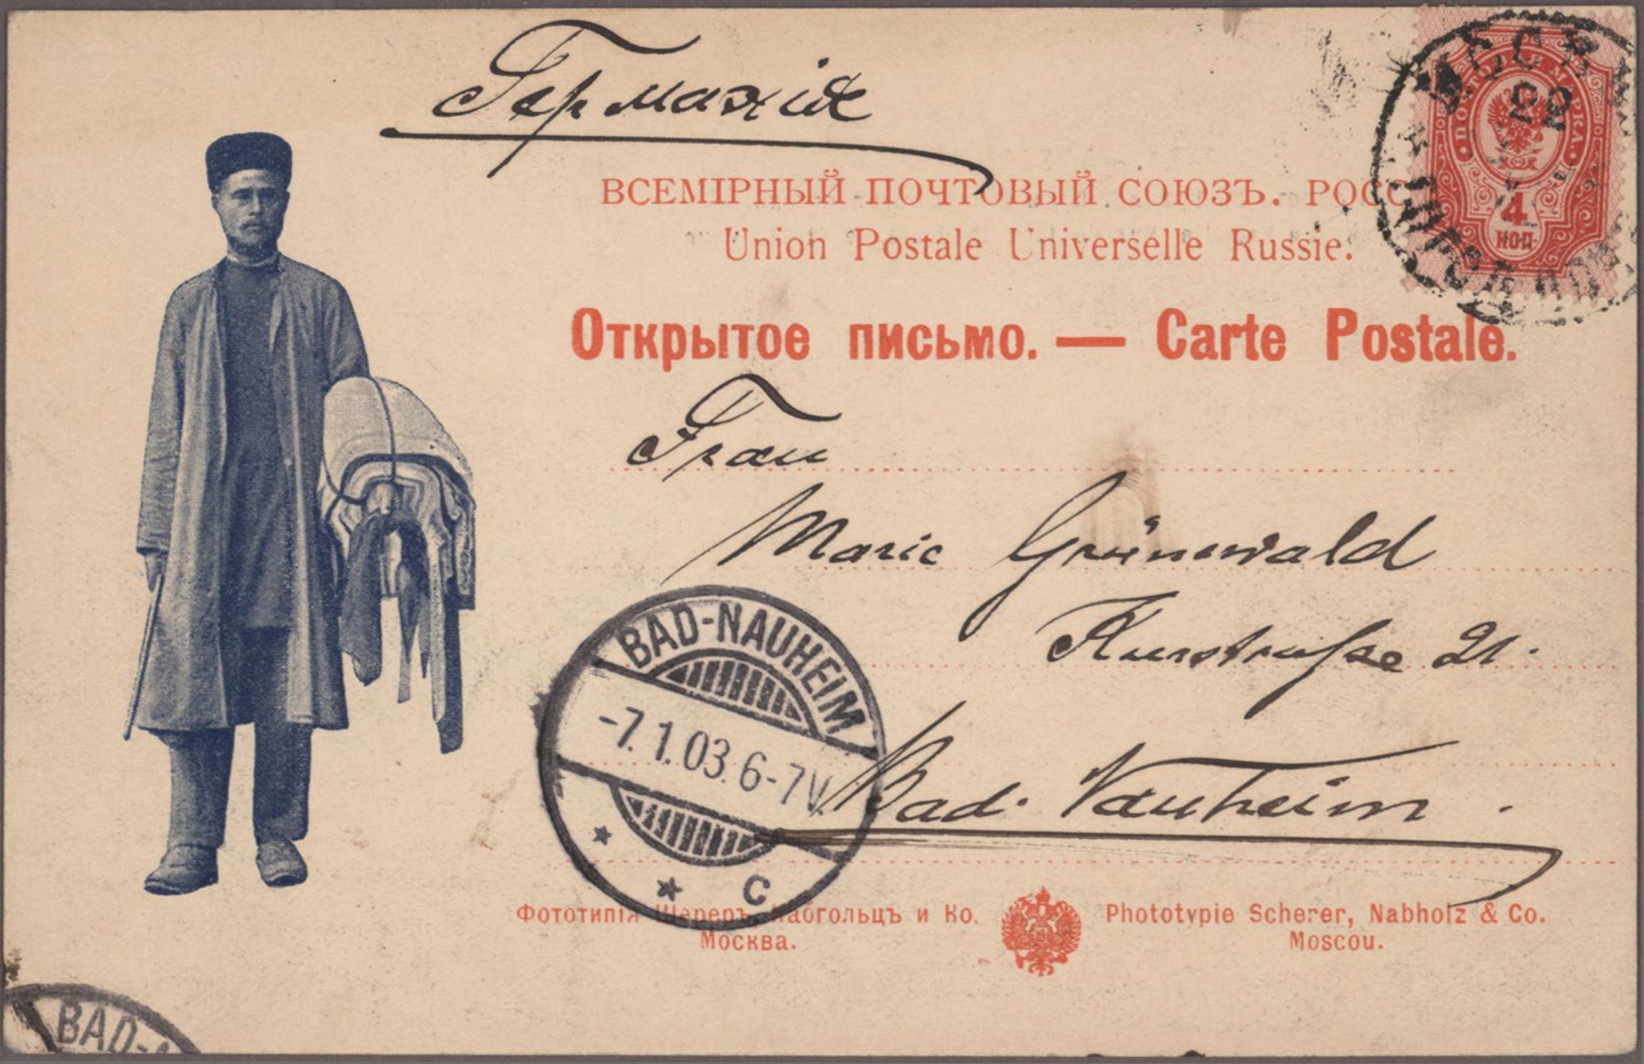 Германія
ВСЕМІРНЫЙ ПОЧТОВЫЙ СОЮЗЪ. РОСС
Union Postale Universelle Russie.
МОСКВА
22
ПОЧТОВ МАРКА
4
КОП
Открытое письмо. — Carte Postale.
Frau
Marie Grünewald
Kurstraße 21.
Bad-Nauheim.
BAD-NAUHEIM
-7.1.03.6-7V.
C
Фототипія Шереръ, Набгольцъ и Ко.
Москва.
Phototypie Scherer, Nabholz & Co.
Moscou.
BAD-N